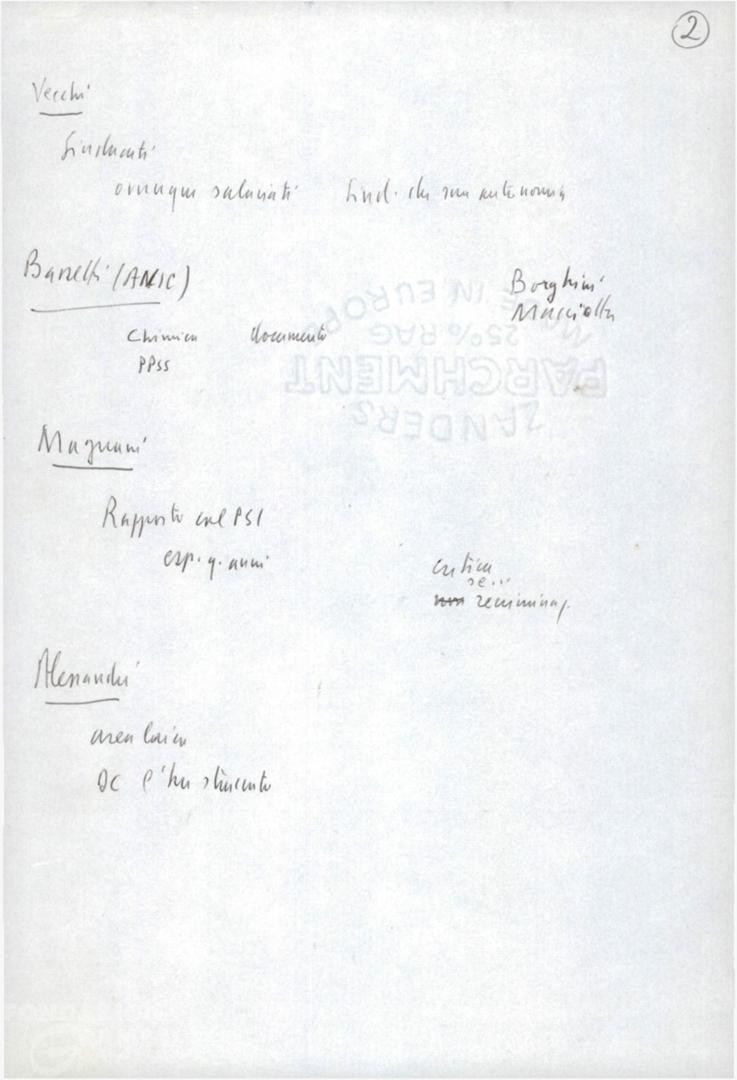 2
Vecchi
Sindacati
ovunque salariati Sind. che sua autonomia
(ANIC)
Borghini
Macciotta
Chimica documento
PPSS
Magnani
Rapporto col PSI
esp. q. anni
critica
se..
non recriminaz.
Alessandri
area laica
DC l'ha stimento
MADE IN EUROPE
25% RAG
PARCHMENT
ZANDERS
FONDAZIONE